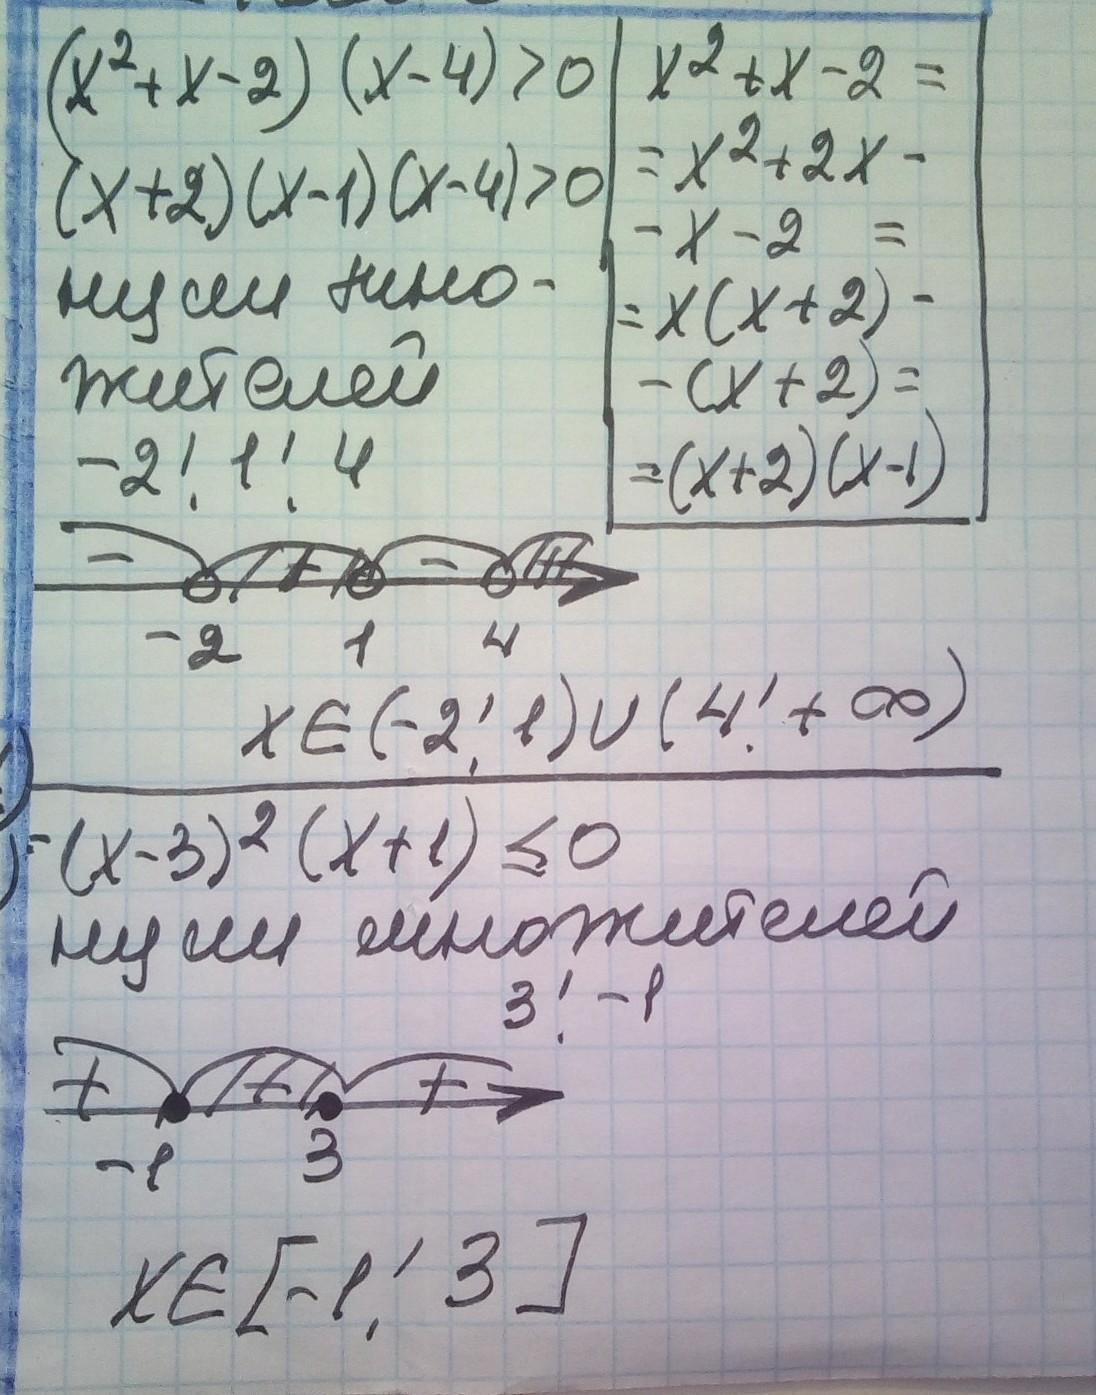 (x²+x-2) (x-4)>0
(x+2)(x-1)(x-4)>0
нули множителей
-2; 1; 4
x²+x-2 =
=x²+2x-
-x-2 =
=x(x+2)-
-(x+2)=
=(x+2)(x-1)
- + - +
-2 1 4
x∈(-2; 1)∪(4; +∞)
-(x-3)²(x+1)≤0
нули множителей
3; -1
+ + +
-1 3
x∈[-1; 3]